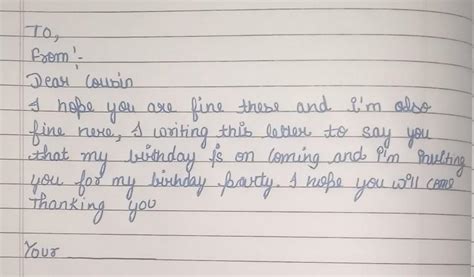 To,
From:-
Dear Cousin
I hope you are fine there and I'm also
fine here, I writing this letter to say you
that my birthday is on coming and I'm Inviting
you for my birhday party. I hope you will come
Thanking you
Your ________